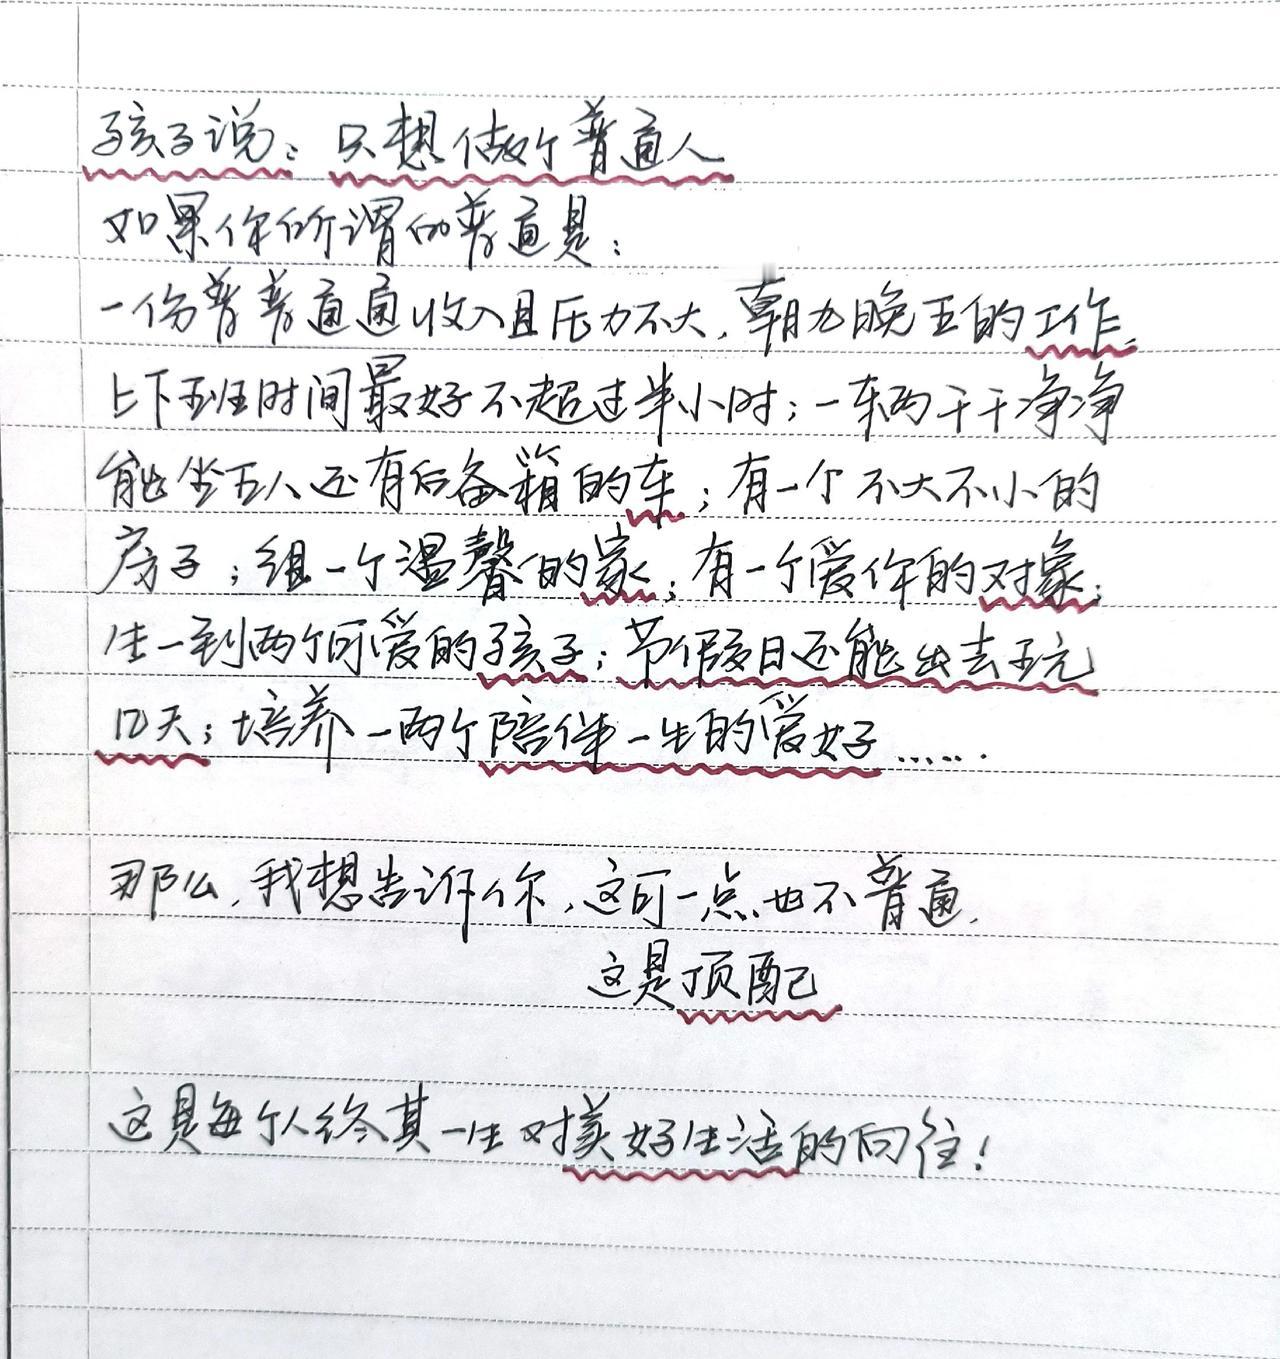 孩子说：只想做个普通人
如果你所谓的普通是：
一份普普通通收入且压力不大，朝九晚五的工作，
上下班时间最好不超过半小时；一辆干干净净
能坐五人还有后备箱的车；有一个不大不小的
房子；组一个温馨的家；有一个爱你的对象；
生一到两个可爱的孩子；节假日还能出去玩
几天；培养一两个陪伴一生的爱好……
那么，我想告诉你，这可一点也不普通，
这是顶配
这是每个人终其一生对美好生活的向往！